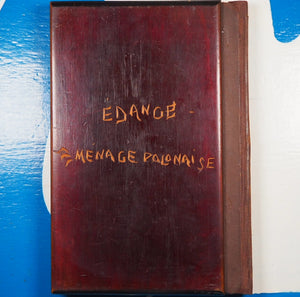 EDANGÉ
MENAGE POLONAISE